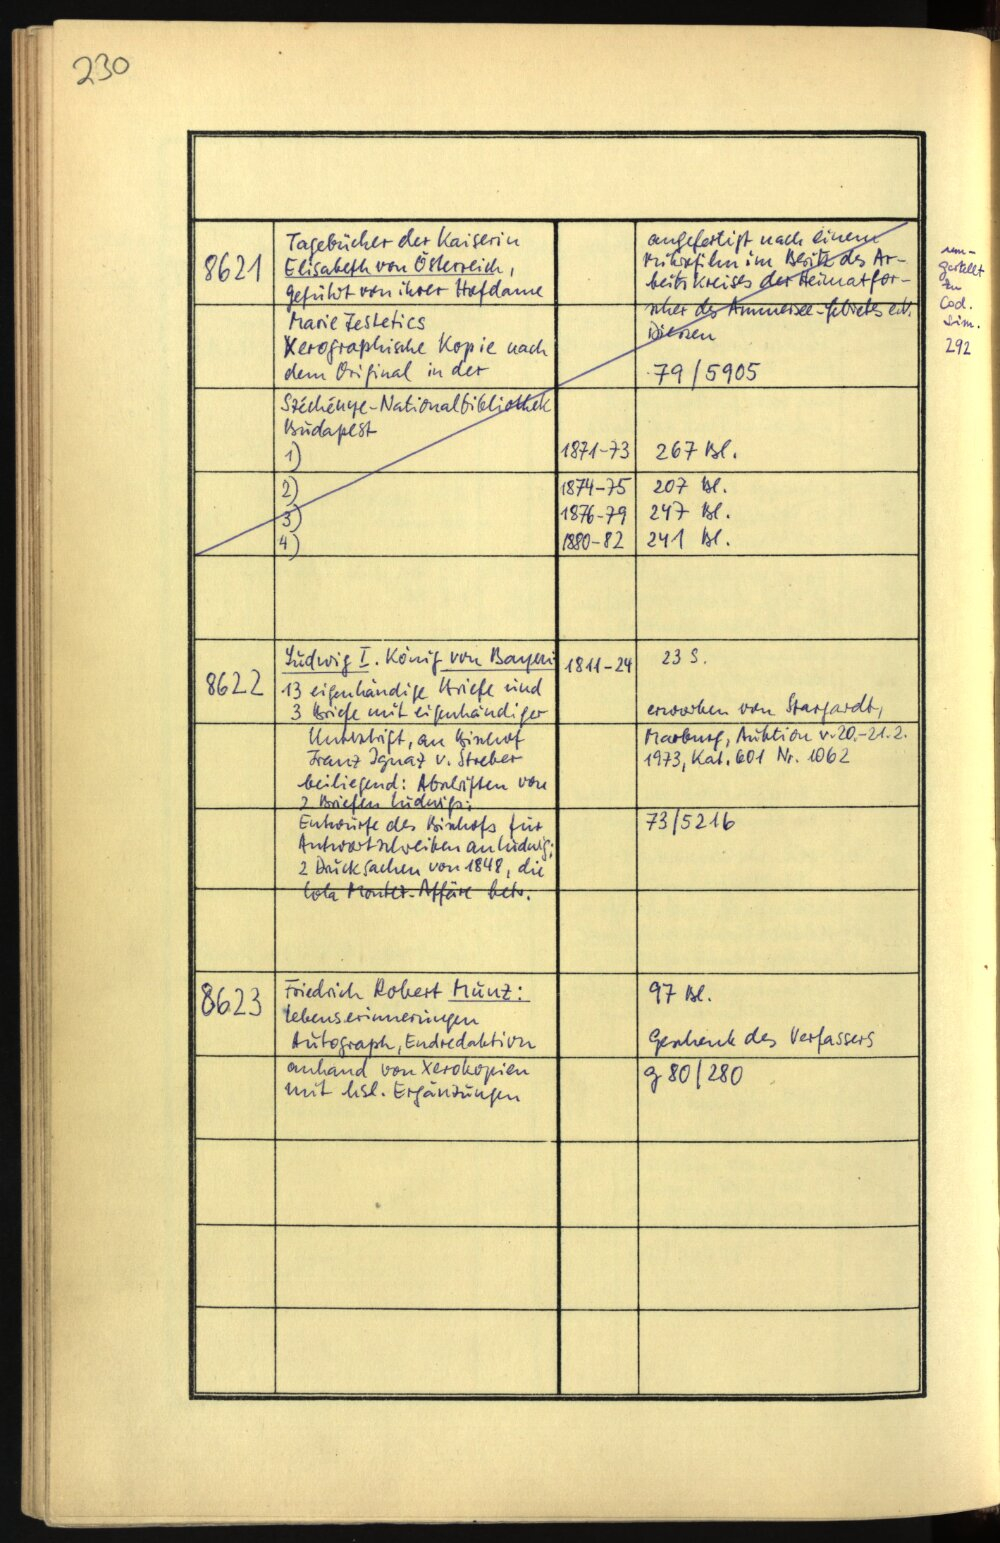 230
8621
Tagebücher der Kaiserin
Elisabeth von Österreich,
geführt von ihrer Hofdame
Marie Festetics
Xerographische Kopie nach
dem Original in der
Széchénye-Nationalbibliothek
Budapest
1) 1871-73 267 Bl.
2) 1874-75 207 Bl.
3) 1876-79 247 Bl.
4) 1880-82 241 Bl.
angefertigt nach einem
Mikrofilm im Besitz des Ar-
beitskreises der Heimatfor-
scher des Ammersee-Gebietes e.V.
Diessen
79/5905
um-
gestellt
zu
Cod.
sim.
292
8622
Ludwig I. König von Bayern
13 eigenhändige Briefe und
3 Briefe mit eigenhändiger
Unterschrift, an Bischof
Franz Ignaz v. Streber
beiliegend: Abschriften von
2 Briefen Ludwigs;
Entwürfe des Bischofs für
Antwortschreiben an Ludwig;
2 Drucksachen von 1848, die
Lola Montez-Affäre betr.
1811-24
23 S.
erworben von Stargardt,
Marburg, Auktion v. 20.-21.2.
1973, Kat. 601 Nr. 1062
73/5216
8623
Friedrich Robert Münz:
Lebenserinnerungen
Autograph, Endredaktion
anhand von Xerokopien
mit hsl. Ergänzungen
97 Bl.
Geschenk des Verfassers
g 80/280